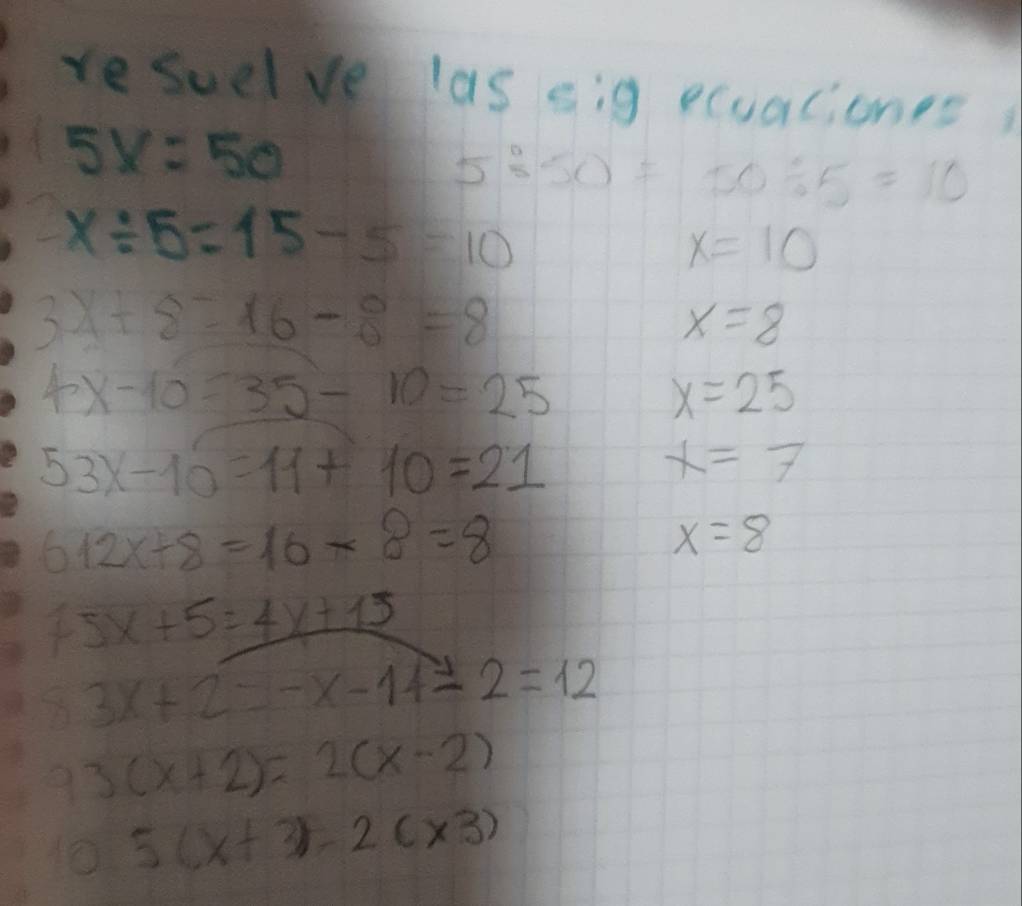 resuelve las sig ecuaciones
1 5X = 50 5 ÷ 50 = 50 ÷ 5 = 10
x ÷ 5 = 15 - 5 = 10 x = 10
3X + 8 = 16 - 8 = 8 x = 8
4x - 10 = 35 - 10 = 25 x = 25
5 3x - 10 = 11 + 10 = 21 x = 7
6 12x + 8 = 16 - 8 = 8 x = 8
7 5x + 5 = 4x + 15
8 3x + 2 = -x - 14 - 2 = 12
9 3(x + 2) = 2(x - 2)
10 5(x + 3) - 2(x3)